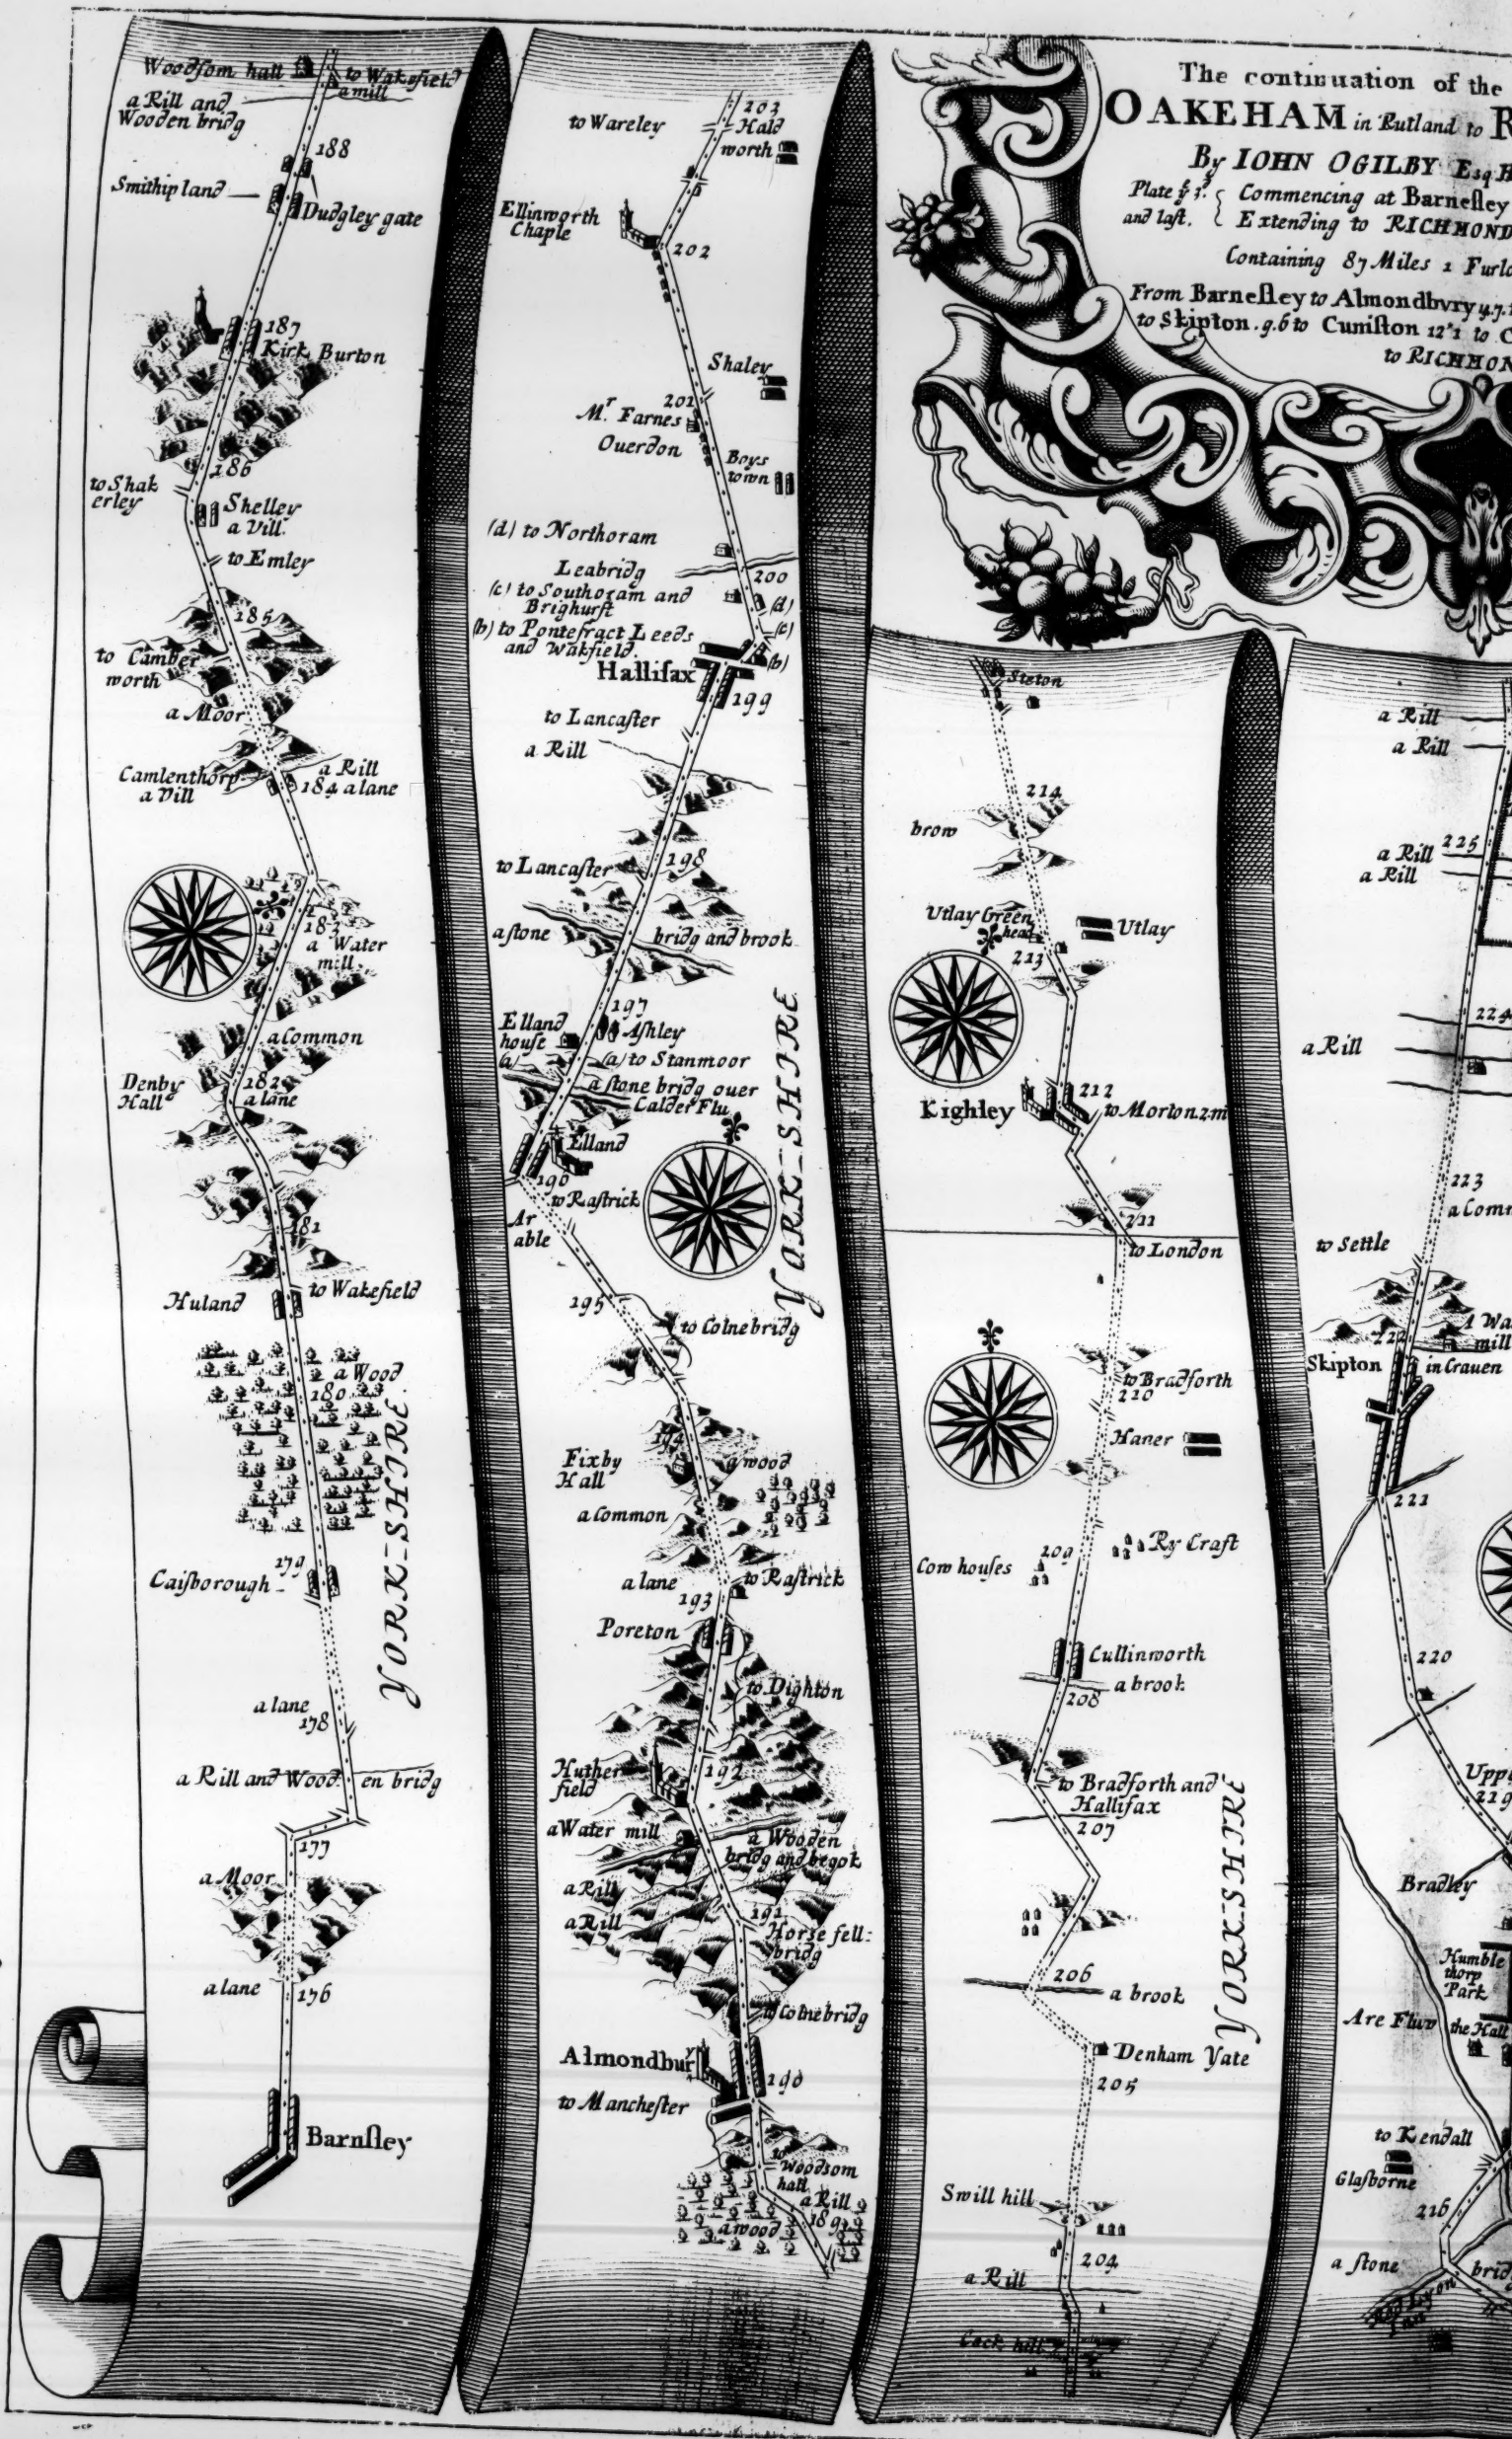 The continuation of the
OAKEHAM in Rutland to R
By IOHN OGILBY Esq H
Plate
and laſt.
Commencing at Barneſley
Extending to RICHMOND
Containing 87 Miles 1 Furlo
From Barneſley to Almondbury 14.7.
to Skipton .9.6 to Cuniſton 12'1 to C
to RICHMON
Woodſom hall
to Wakefield
a mill
a Rill and
Wooden bridg
188
Smithip land
Dudgley gate
187
Kirk Burton
186
to Shak
erley
Shelley
a Vill.
to Emley
185
to Camber
worth
a Moor
Camlenthorp
a Vill
a Rill
184 a lane
183
a Water
mill
a Common
Denby
Hall
182
a lane
181
Huland
to Wakefield
a Wood
180
YORK-SHIRE
179
Caiſborough
a lane
178
a Rill and Wood en bridg
177
a Moor
a lane
176
Barnſley
203
to Wareley
Hald
worth
Ellinworth
Chaple
202
Shaley
201
Mr. Farnes
Ouerdon
Boys
town
(d) to Northoram
Leabridg
200
(c) to Southoram and
Brighurſt
(d)
(c)
(b) to Pontefract Leeds
and Wakfield.
(b)
Hallifax
199
to Lancaſter
a Rill
198
to Lancaſter
a ſtone bridg and brook
197
Elland
house
(a)
Aſhley
(a) to Stanmoor
a ſtone bridg over
Calder Flu
Elland
196
to Raſtrick
Ar
able
YORK-SHIRE
195
to Colnebridg
194
Fixby
Hall
a wood
a Common
a lane
to Raſtrick
193
Poreton
to Dighton
Huther
field
192
a Water mill
a Wooden
bridg and
a Rill
a Rill
191
Horse fell:
bridg
to Colnebridg
Almondbury
190
to Mancheſter
to
Woodsom
hall
a Rill
189
a wood
Steton
214
brow
Utlay Green
head
Utlay
213
212
Kighley
to Morton 2m
211
to London
to Bradforth
210
Haner
209
Cow houſes
Ry Craft
Cullinworth
a brook
208
to Bradforth and
Hallifax
207
YORK-SHIRE
206
a brook
Denham Yate
205
Swill hill
204
a Rill
Cock hill
a Rill
a Rill
225
a Rill
a Rill
224
a Rill
223
a Com
to Settle
A Wa
mill
222
Skipton
in Crauen
221
220
Upp
219
Bradley
Humble
thorp
Park
Are Fluv
the Hall
to Kendall
Glaſborne
216
a ſtone
brid
Red Lyon
Inn